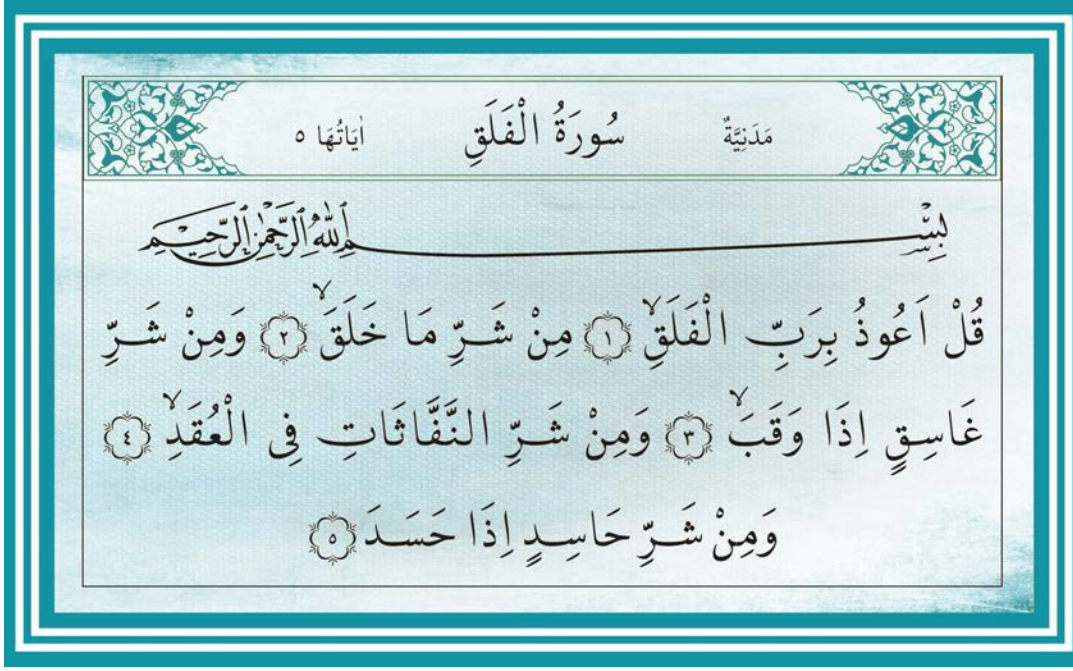 مَدَنِيَّةٌ سُورَةُ الْفَلَقِ اٰيَاتُهَا ٥
بِسْمِ اللّٰهِ الرَّحْمٰنِ الرَّحِيمِ
قُلْ اَعُوذُ بِرَبِّ الْفَلَقِۙ ﴿١﴾ مِنْ شَرِّ مَا خَلَقَۙ ﴿٢﴾ وَمِنْ شَرِّ
غَاسِقٍ اِذَا وَقَبَۙ ﴿٣﴾ وَمِنْ شَرِّ النَّفَّاثَاتِ فِى الْعُقَدِۙ ﴿٤﴾
وَمِنْ شَرِّ حَاسِدٍ اِذَا حَسَدَ ﴿٥﴾